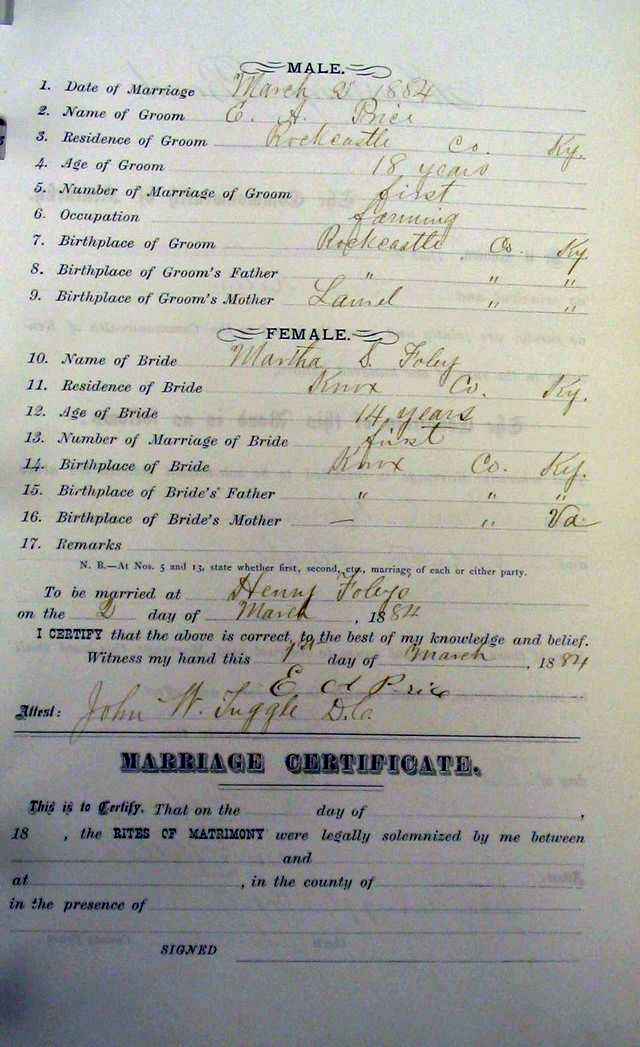 MALE.
1. Date of Marriage March 2 1884
2. Name of Groom E. A. Price
3. Residence of Groom Rockcastle Co. Ky.
4. Age of Groom 18 years
5. Number of Marriage of Groom first
6. Occupation farming
7. Birthplace of Groom Rockcastle Co. Ky
8. Birthplace of Groom's Father " " "
9. Birthplace of Groom's Mother Laurel " "
FEMALE.
10. Name of Bride Martha S. Foley
11. Residence of Bride Knox Co. Ky.
12. Age of Bride 14 years
13. Number of Marriage of Bride first
14. Birthplace of Bride Knox Co. Ky.
15. Birthplace of Bride's Father " " "
16. Birthplace of Bride's Mother — " Va.
17. Remarks
N. B.—At Nos. 5 and 13, state whether first, second, etc., marriage of each or either party.
To be married at Henry Foleys
on the 2 day of March, 1884
I CERTIFY that the above is correct, to the best of my knowledge and belief.
Witness my hand this 1st day of March, 1884
E A Price
Attest: John W. Tuggle D.C.
MARRIAGE CERTIFICATE.
This is to Certify, That on the day of ,
18 , the RITES OF MATRIMONY were legally solemnized by me between
and
at , in the county of
in the presence of
SIGNED